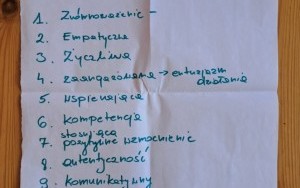 1. Zrównoważenie -
2. Empatyczne
3. Życzliwa
4. zaangażowana → entuzjazm
działania
5. wspierająca
6. kompetencja
stosująca
7. pozytywne wzmocnienie
8. autentyczność
9. komunikatywny